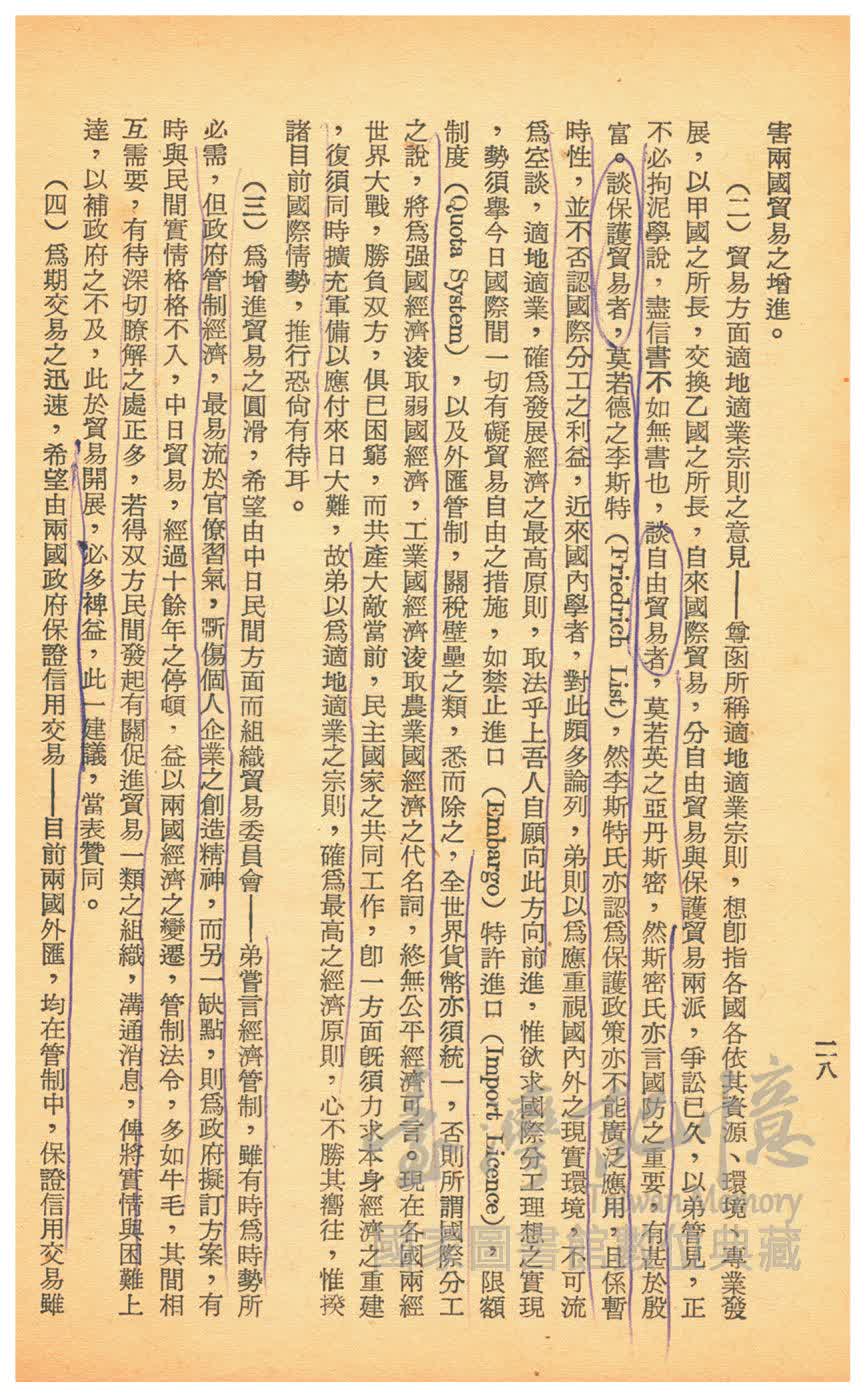 害兩國貿易之增進。
（二）貿易方面適地適業宗則之意見——尊函所稱適地適業宗則，想卽指各國各依其資源、環境、專業發
展，以甲國之所長，交換乙國之所長，自來國際貿易，分自由貿易與保護貿易兩派，爭訟已久，以弟管見，正
不必拘泥學說，盡信書不如無書也，談自由貿易者，莫若英之亞丹斯密，然斯密氏亦言國防之重要，有甚於殷
富。談保護貿易者，莫若德之李斯特（Friedrich List），然李斯特氏亦認爲保護政策亦不能廣泛應用，且係暫
時性，並不否認國際分工之利益，近來國內學者，對此頗多論列，弟則以爲應重視國內外之現實環境，不可流
爲空談，適地適業，確爲發展經濟之最高原則，取法乎上吾人自願向此方向前進，惟欲求國際分工理想之實現
，勢須擧今日國際間一切有礙貿易自由之措施，如禁止進口（Embargo）特許進口（Import Licence），限額
制度（Quota System），以及外匯管制，關稅壁壘之類，悉而除之，全世界貨幣亦須統一，否則所謂國際分工
之說，將爲强國經濟淩取弱國經濟，工業國經濟淩取農業國經濟之代名詞，終無公平經濟可言。現在各國兩經
世界大戰，勝負双方，俱已困窮，而共產大敵當前，民主國家之共同工作，卽一方面旣須力求本身經濟之重建
，復須同時擴充軍備以應付來日大難，故弟以爲適地適業之宗則，確爲最高之經濟原則，心不勝其嚮往，惟揆
諸目前國際情勢，推行恐尙有待耳。
（三）爲增進貿易之圓滑，希望由中日民間方面而組織貿易委員會——弟嘗言經濟管制，雖有時爲時勢所
必需，但政府管制經濟，最易流於官僚習氣，斲傷個人企業之創造精神，而另一缺點，則爲政府擬訂方案，有
時與民間實情格格不入，中日貿易，經過十餘年之停頓，益以兩國經濟之變遷，管制法令，多如牛毛，其間相
互需要，有待深切瞭解之處正多，若得双方民間發起有關促進貿易一類之組織，溝通消息，俾將實情與困難上
達，以補政府之不及，此於貿易開展，必多裨益，此一建議，當表贊同。
（四）爲期交易之迅速，希望由兩國政府保證信用交易——目前兩國外匯，均在管制中，保證信用交易雖
一一八
臺灣記憶
Taiwan Memory
國家圖書館數位典藏